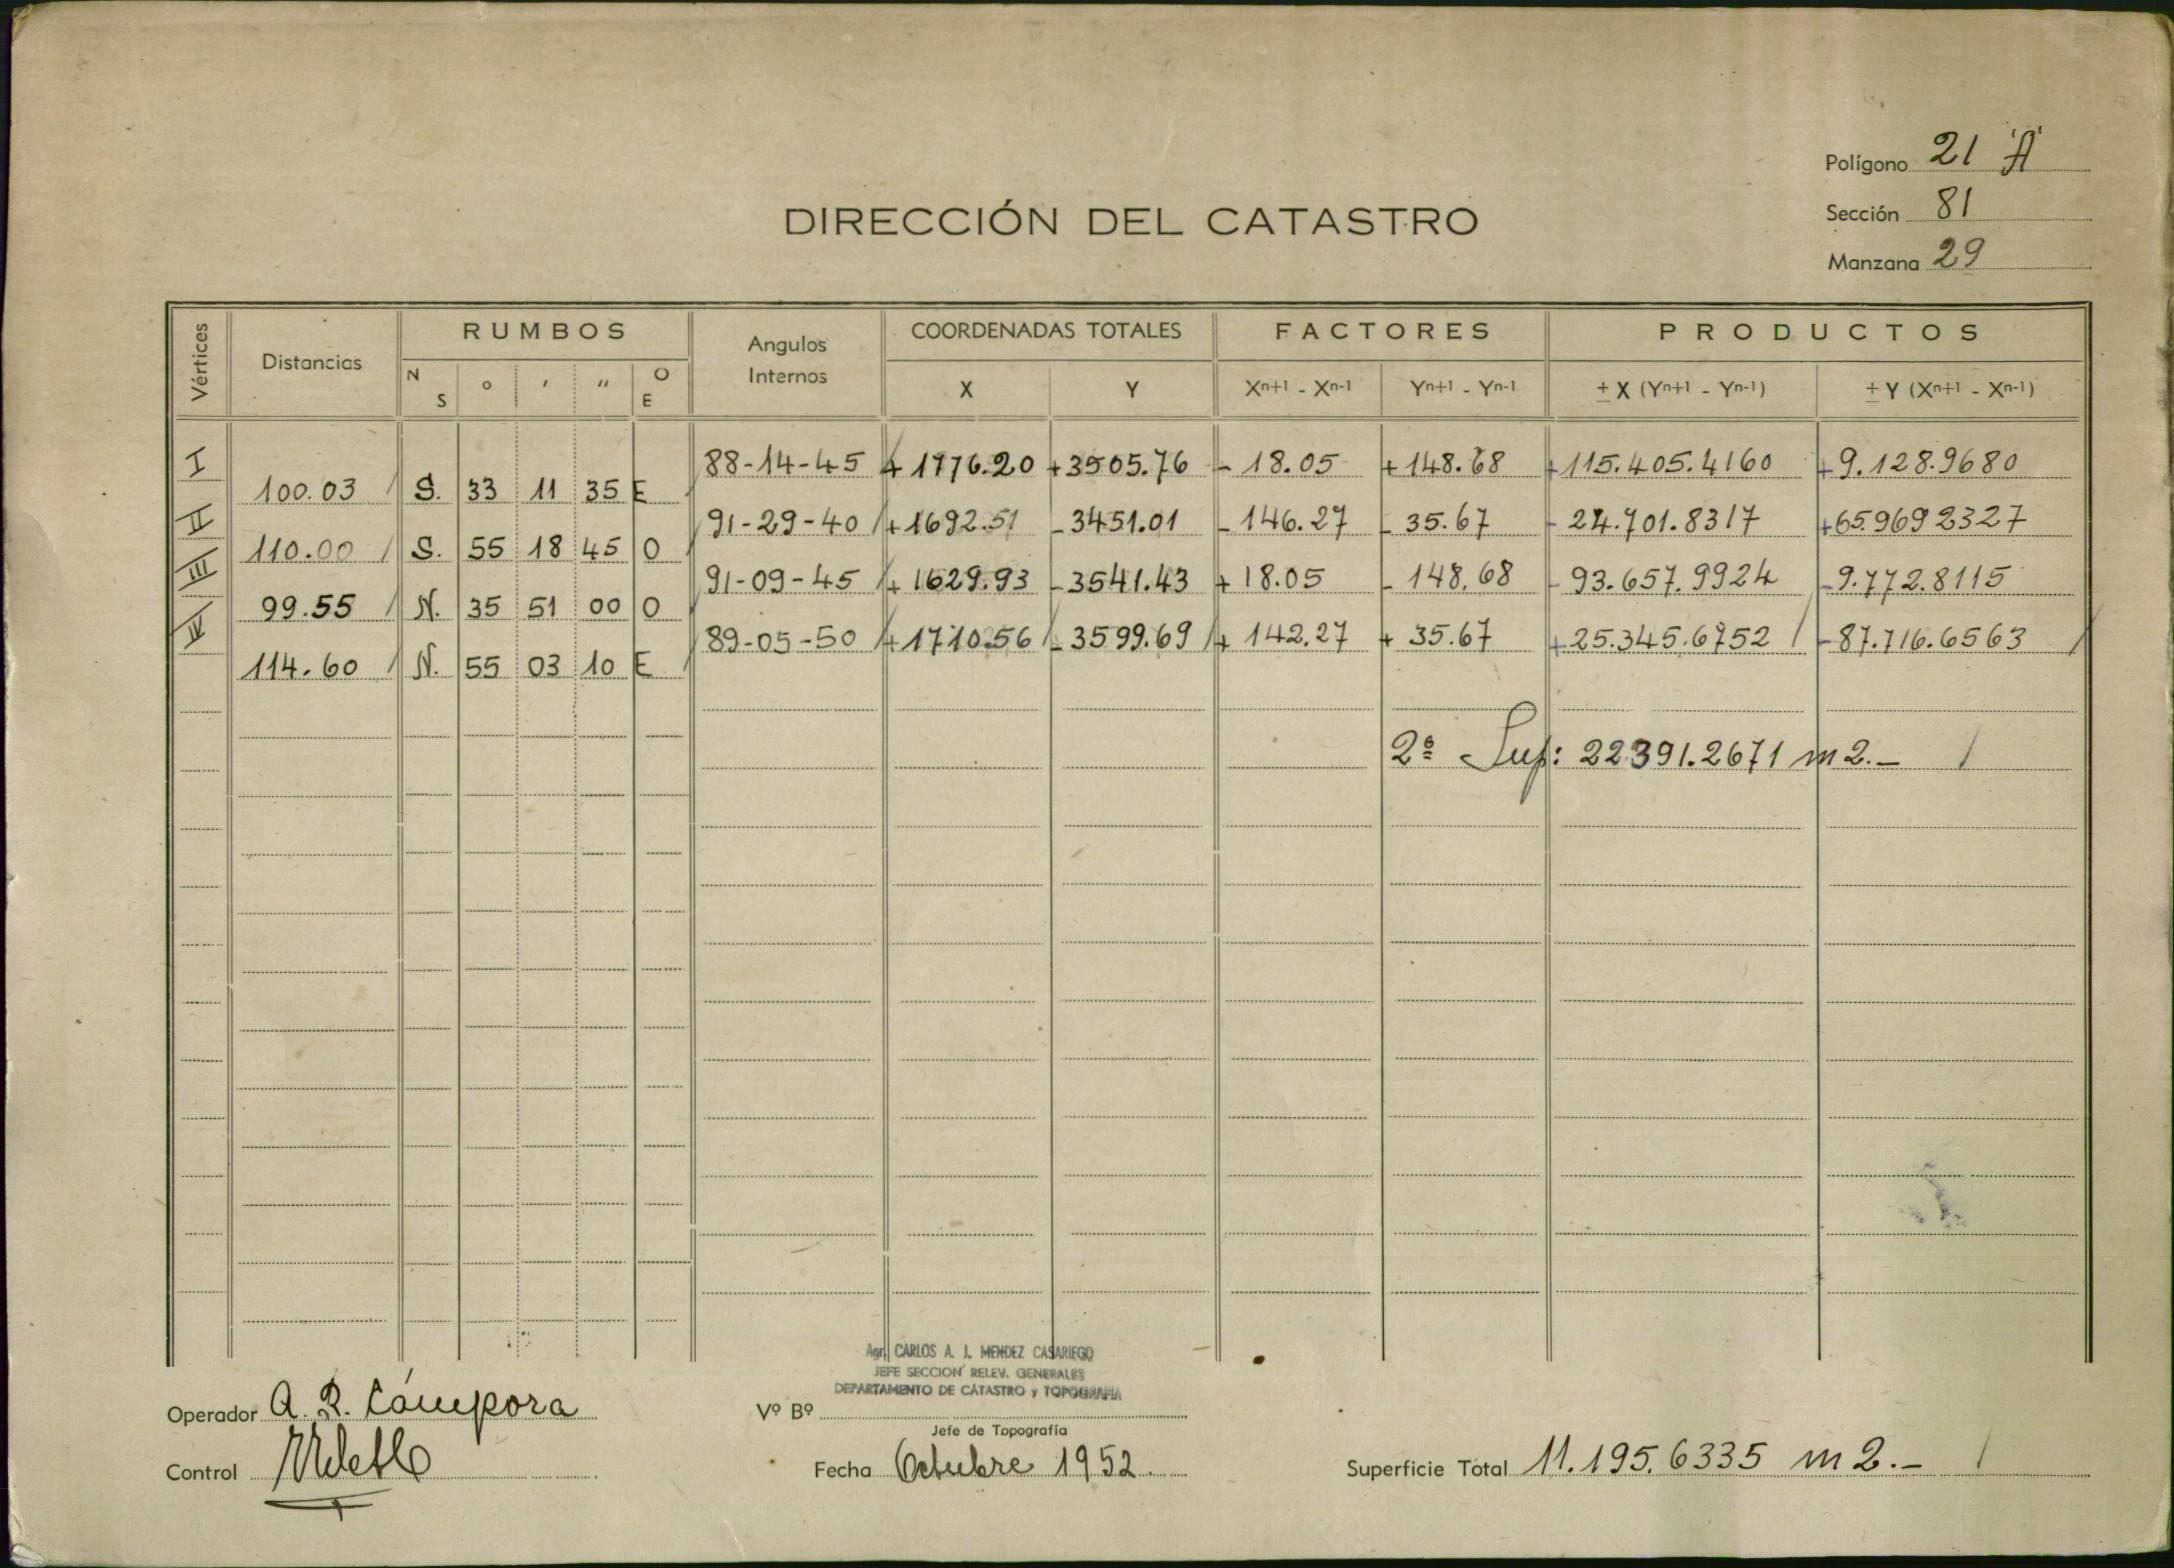 Polígono 21 "A"
Sección 81
Manzana 29
DIRECCIÓN DEL CATASTRO
Vértices Distancias RUMBOS Angulos Internos COORDENADAS TOTALES FACTORES PRODUCTOS
N S º ' " O E X Y Xn+1 - Xn-1 Yn+1 - Yn-1 ± X (Yn+1 - Yn-1) ± Y (Xn+1 - Xn-1)
I 88-14-45 +1776.20 +3505.76 - 18.05 +148.68 +115.405.4160 +9.128.9680
100.03 S. 33 11 35 E
II 91-29-40 +1692.51 -3451.01 -146.27 - 35.67 - 24.701.8317 +65.969 2327
110.00 S. 55 18 45 O
III 91-09-45 +1629.93 -3541.43 +18.05 - 148.68 - 93.657.9924 -9.772.8115
99.55 N. 35 51 00 O
IV 89-05-50 +1710.56 -3599.69 + 142.27 + 35.67 +25.345.6752 -87.716.6563
114.60 N. 55 03 10 E
2ª Sup: 22391.2671 m2.-
Agr. CARLOS A. J. MENDEZ CASARIEGO
JEFE SECCION RELEV. GENERALES
DEPARTAMENTO DE CATASTRO y TOPOGRAFIA
Operador A. R. Cámpora
Vº Bº
Jefe de Topografía
Control
Fecha Octubre 1952.
Superficie Total 11.195.6335 m2.-